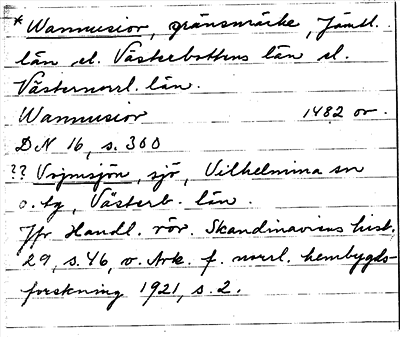 * Wannusior, gränsmärke, Jämtl.
län el. Västerbottens län el.
Västernorrl. län.
Wannusior 1482 or.
DN 16, s. 360
?? Vojmsjön, sjö, Vilhelmina sn
o. tg, Västerb. län.
Jfr Handl. rör. Skandinaviens hist.
29, s. 46, o. Ark. f. norrl. hembygds-
forskning 1921, s. 2.